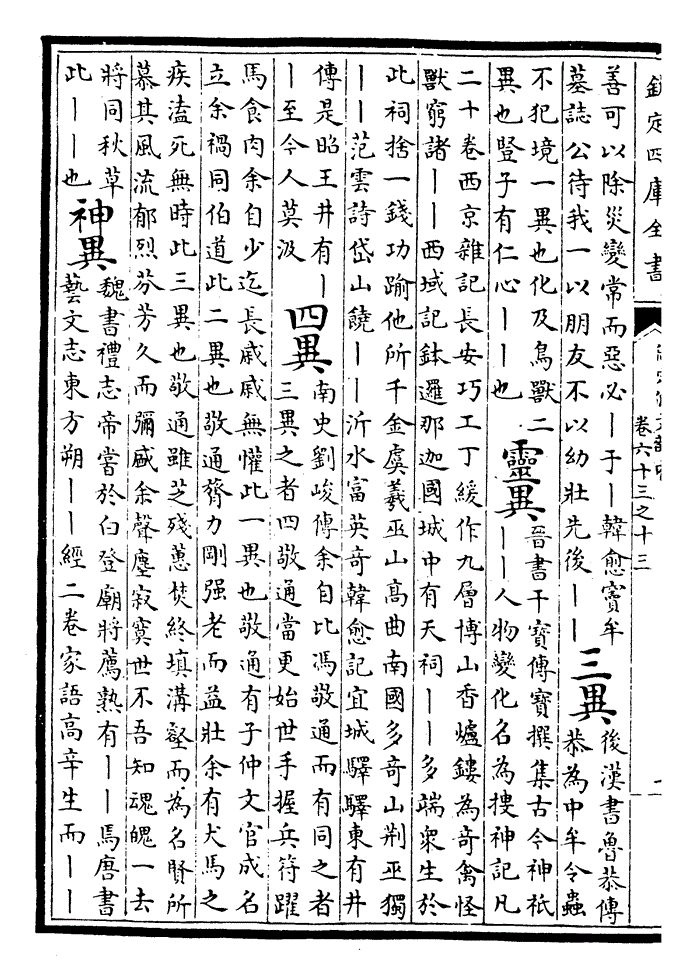 欽定四庫全書
卷六十三之十三
善可以除災變常而惡必丨于丨韓愈竇牟
墓誌公待我一以朋友不以幼壯先後丨丨
三異
後漢書魯恭傳
恭為中牟令蟲
不犯境一異也化及鳥獸二
異也豎子有仁心丨丨也
靈異
晉書干寶傳寶撰集古今神祇
丨丨人物變化名為搜神記凡
二十卷西京雜記長安巧工丁緩作九層博山香爐鏤為奇禽怪
獸窮諸丨丨西域記鉢邏那迦國城中有天祠丨丨多端衆生於
此祠捨一錢功踰他所千金虞羲巫山高曲南國多奇山荆巫獨
丨丨范雲詩岱山饒丨丨沂水富英奇韓愈記宜城驛驛東有井
傳是昭王井有丨
丨至今人莫汲
四異
南史劉峻傳余自比馮敬通而有同之者
三異之者四敬通當更始世手握兵符躍
馬食肉余自少迄長戚戚無懽此一異也敬通有子仲文官成名
立余禍同伯道此二異也敬通膂力剛强老而益壯余有犬馬之
疾溘死無時此三異也敬通雖芝殘蕙焚終填溝壑而為名賢所
慕其風流郁烈芬芳久而彌盛余聲塵寂寞世不吾知魂魄一去
將同秋草
此丨丨也
神異
魏書禮志帝嘗於白登廟將薦熟有丨丨焉唐書
藝文志東方朔丨丨經二卷家語高辛生而丨丨